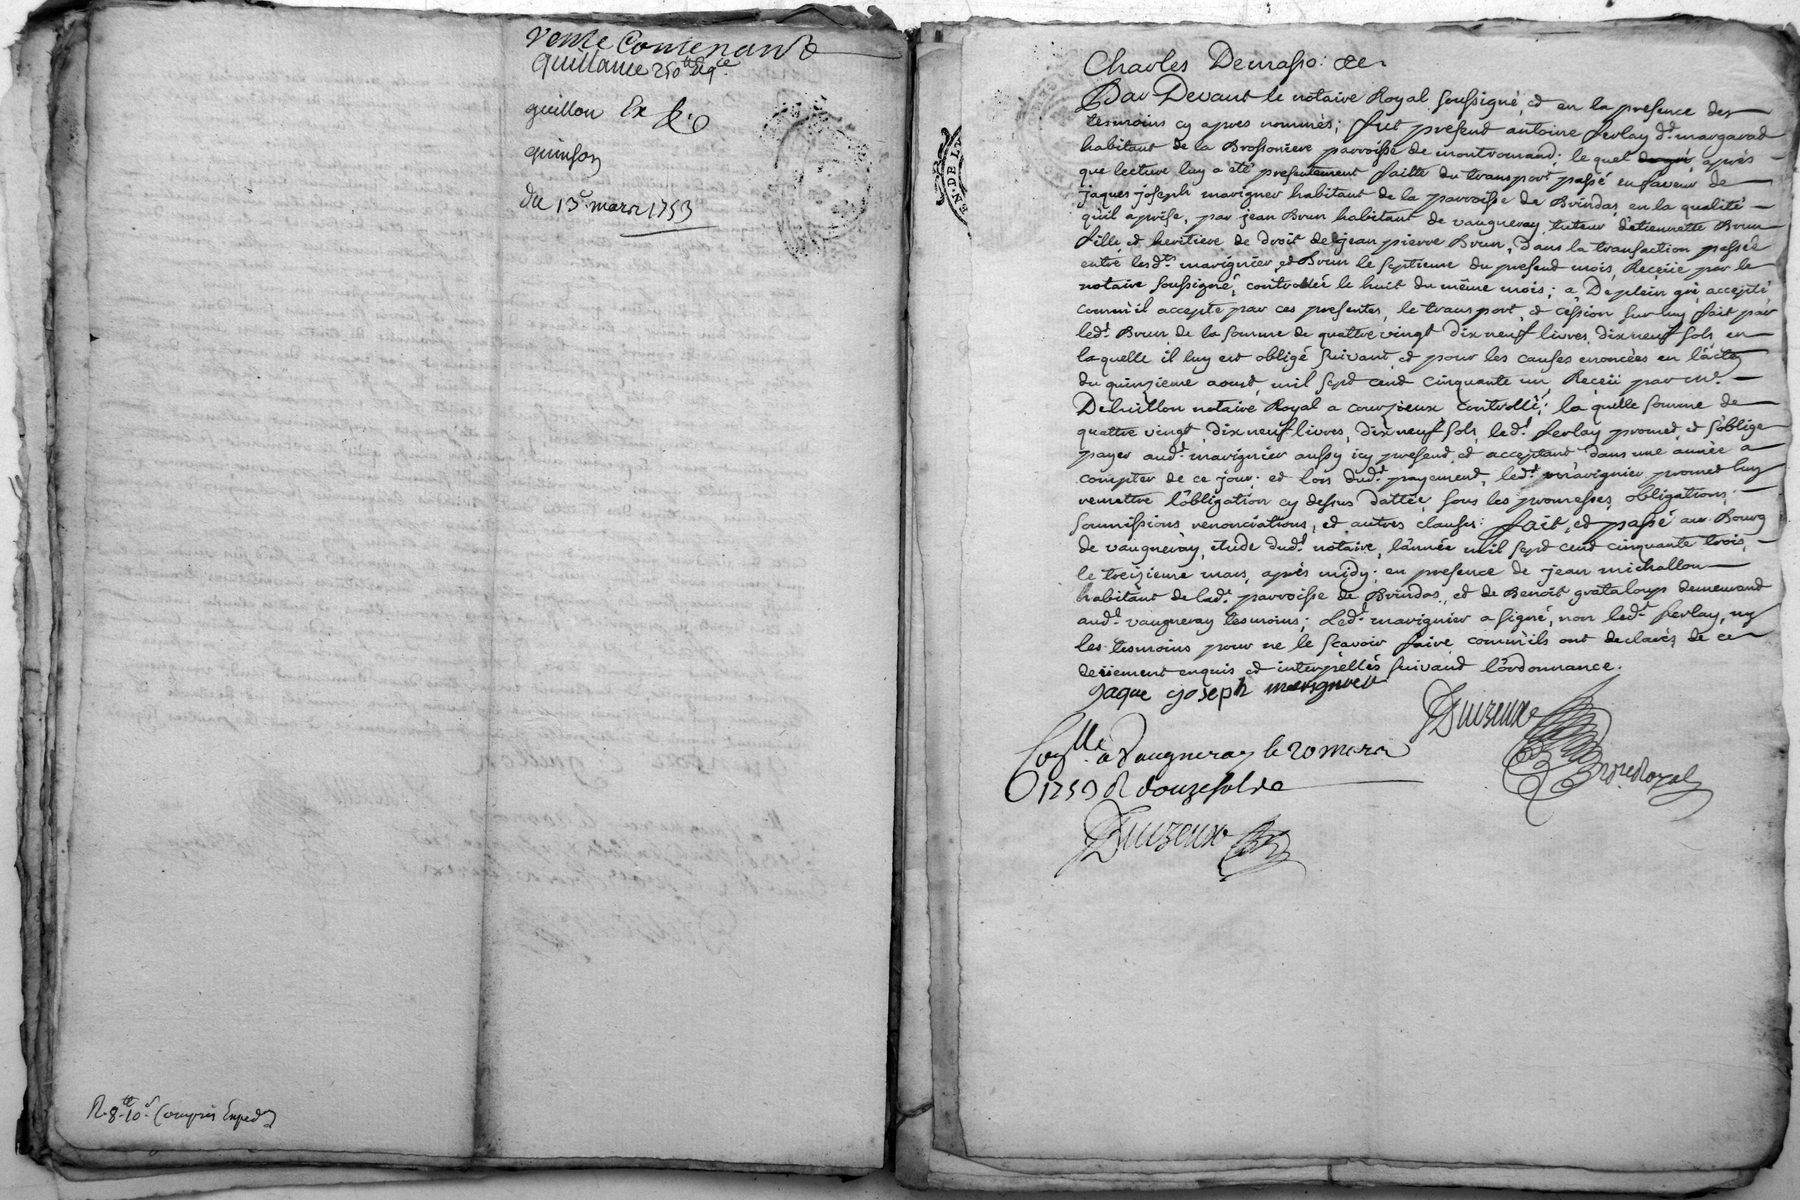 Vente Contenant
quittance 250tt
guillon Ex
guinson
du 13e mars 1753
R. 8tt 10s Compris Exped
EN. DE LY
Charles Demasso: &c
Par Devant le notaire Royal soussigné, et en la presence des
tesmoins cy apres nommés; fut present antoine ferlay dt. margarad
habitant de la Brossoniere parroisse de montromand; le quel de gré, après
que lecture luy a été presentement faitte du transport passé en faveur de
jaques joseph marignier habitant de la parroisse de Brindas, en la qualité
quil a prise, par jean Brun habitant de vaugneray, tuteur d'etiennette Brun
fille et heritiere de droit de jean pierre Brun, dans la transaction passée
entre lesdts. marignier, et Brun le septieme du present mois, Receüe par le
notaire soussigné, controllée le huit du même mois; a De plein gré accepté,
comm'il accepte par ces presentes, le transport, et cession sur luy fait par
ledt. Brun de la somme de quattre vingt dix neuf livres, dix neuf sols, en
laquelle il luy est obligé suivant, et pour les causes enoncées en l'acte
du quinzieme aoust mil sept cent cinquante un, Receü par Me.
Deluillon notaire Royal a courzieux controllé; la quelle somme de
quattre vingt dix neuf livres, dix neuf sols, ledt. ferlay promet, et s'oblige
payer audt. marignier aussy icy present, et acceptant dans une année a
compter de ce jour; et lors dudt. payement, ledt. marignier promet luy
remettre l'obligation cy dessus dattée, sous les promesses, obligations,
soumissions, renonciations, et autres clauses: fait, et passé au Bourg
de vaugneray, etude dudt. notaire, l'année mil sept cent cinquante trois,
le treizieme mars, après midy; en presence de jean michallon
habitant de ladt. parroisse de Brindas, et de Benoit grataloup demeurant
audt. vaugneray tesmoins; Ledt. marignier a signé, non ledt. ferlay, ny
les tesmoins pour ne le sçavoir faire, comm'ils ont declarés de ce
deüement enquis, et interpellés suivant l'ordonnance.
jaque joseph marignier
Duizeux
nore Royal
Conlle. à Vaugneray le 20 mars
1753 R douze sols
Duizeux